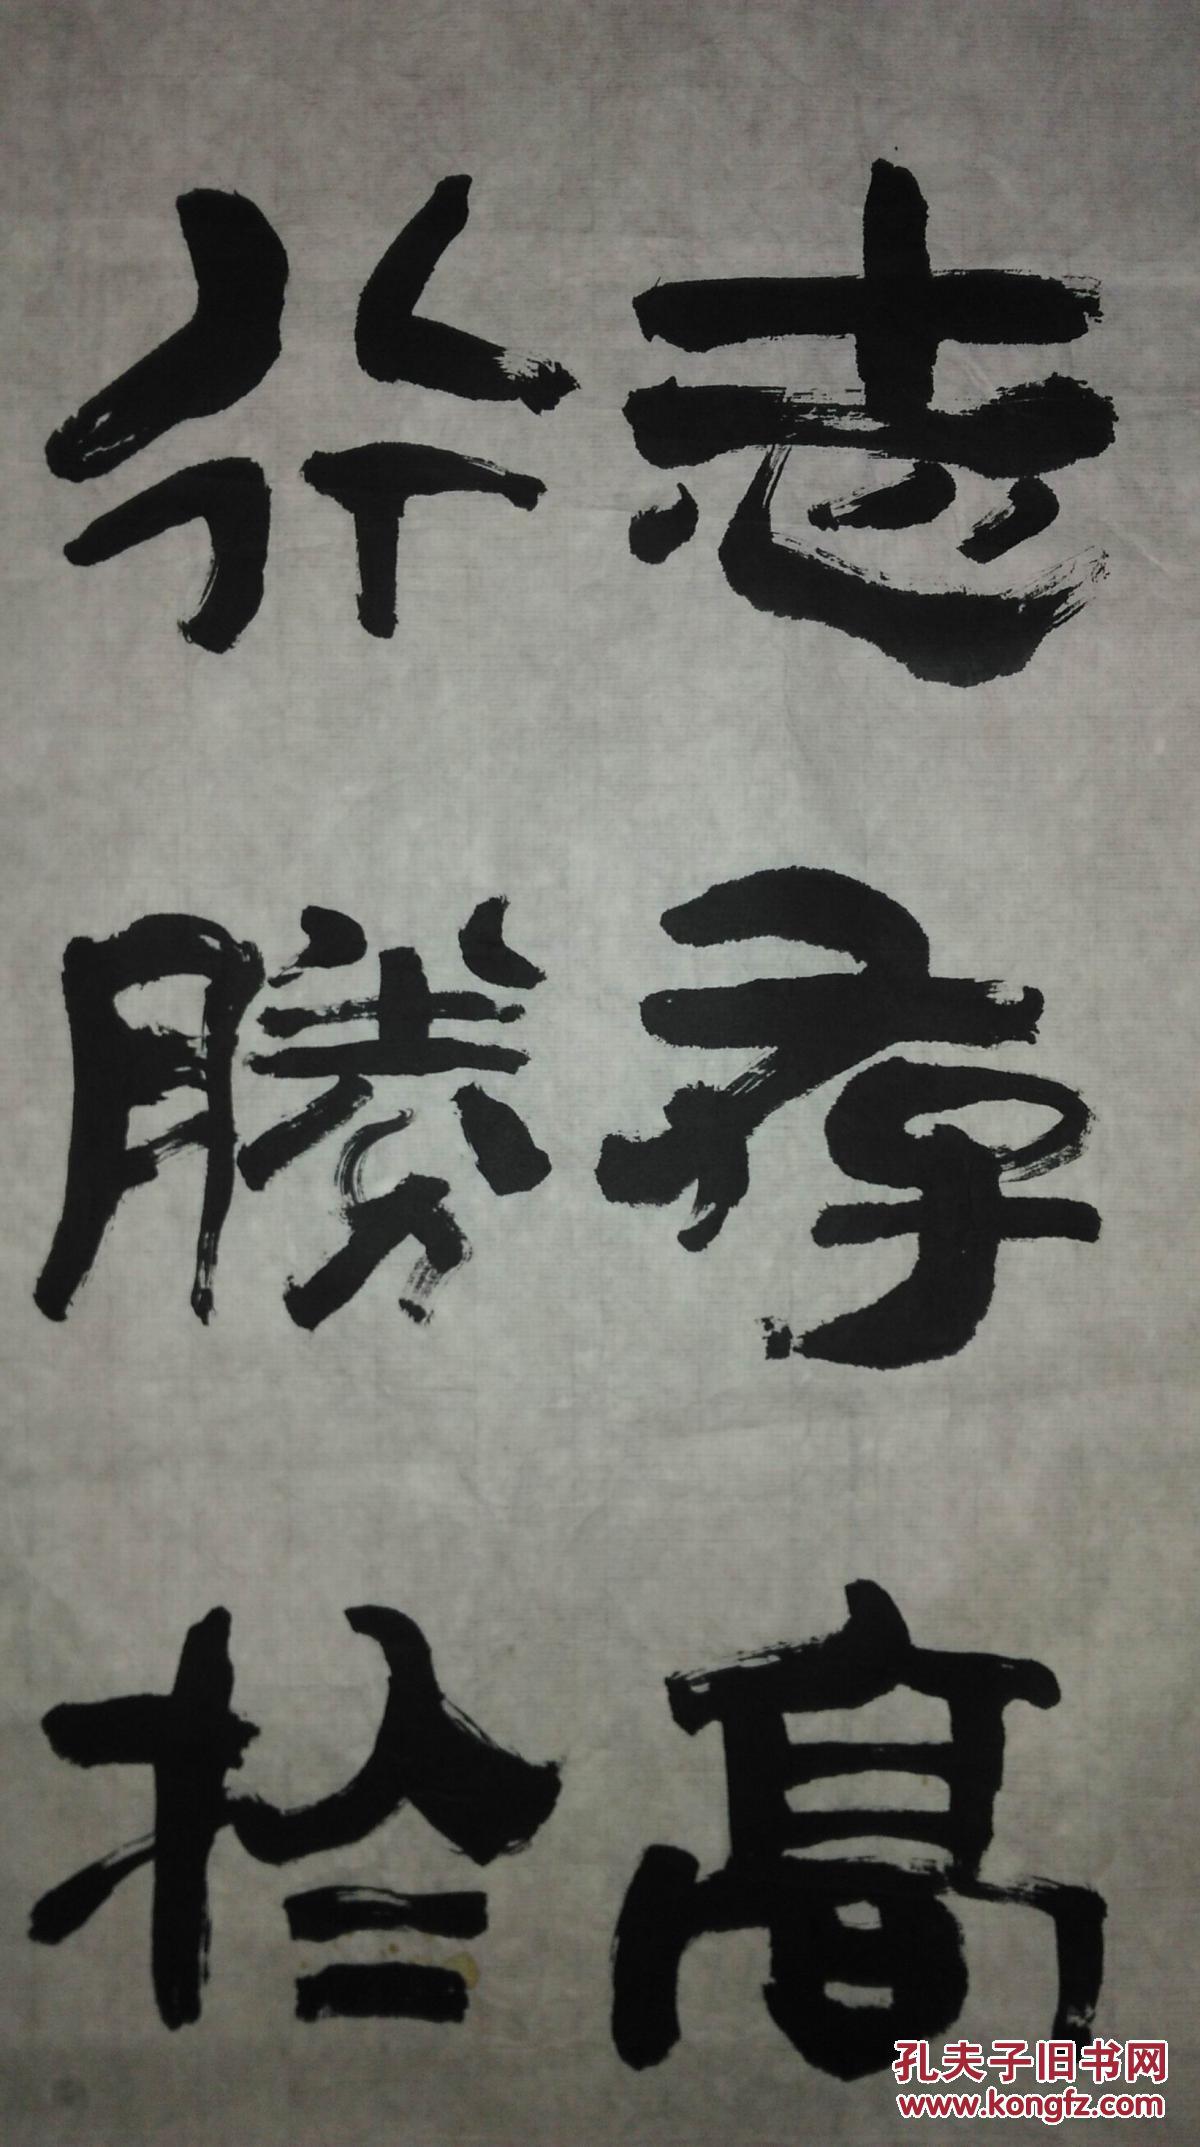 志存高
行勝於
孔夫子旧书网
www.kongfz.com